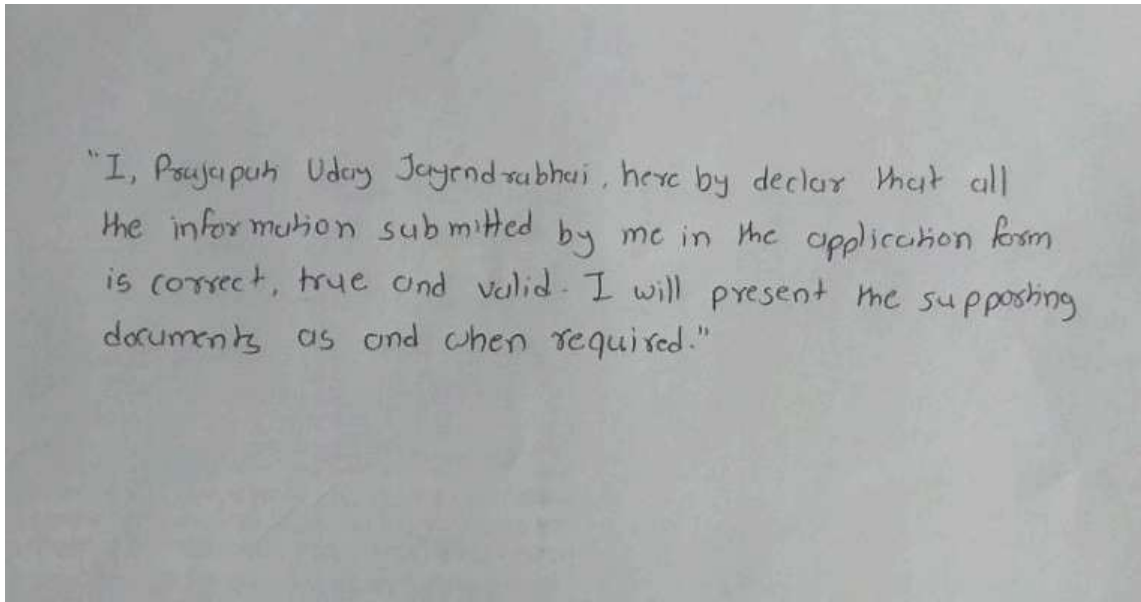 "I, Prajapati Uday Jayendrabhai, here by declar that all
the information submitted by me in the application form
is correct, true and valid. I will present the supporting
documents as and when required."